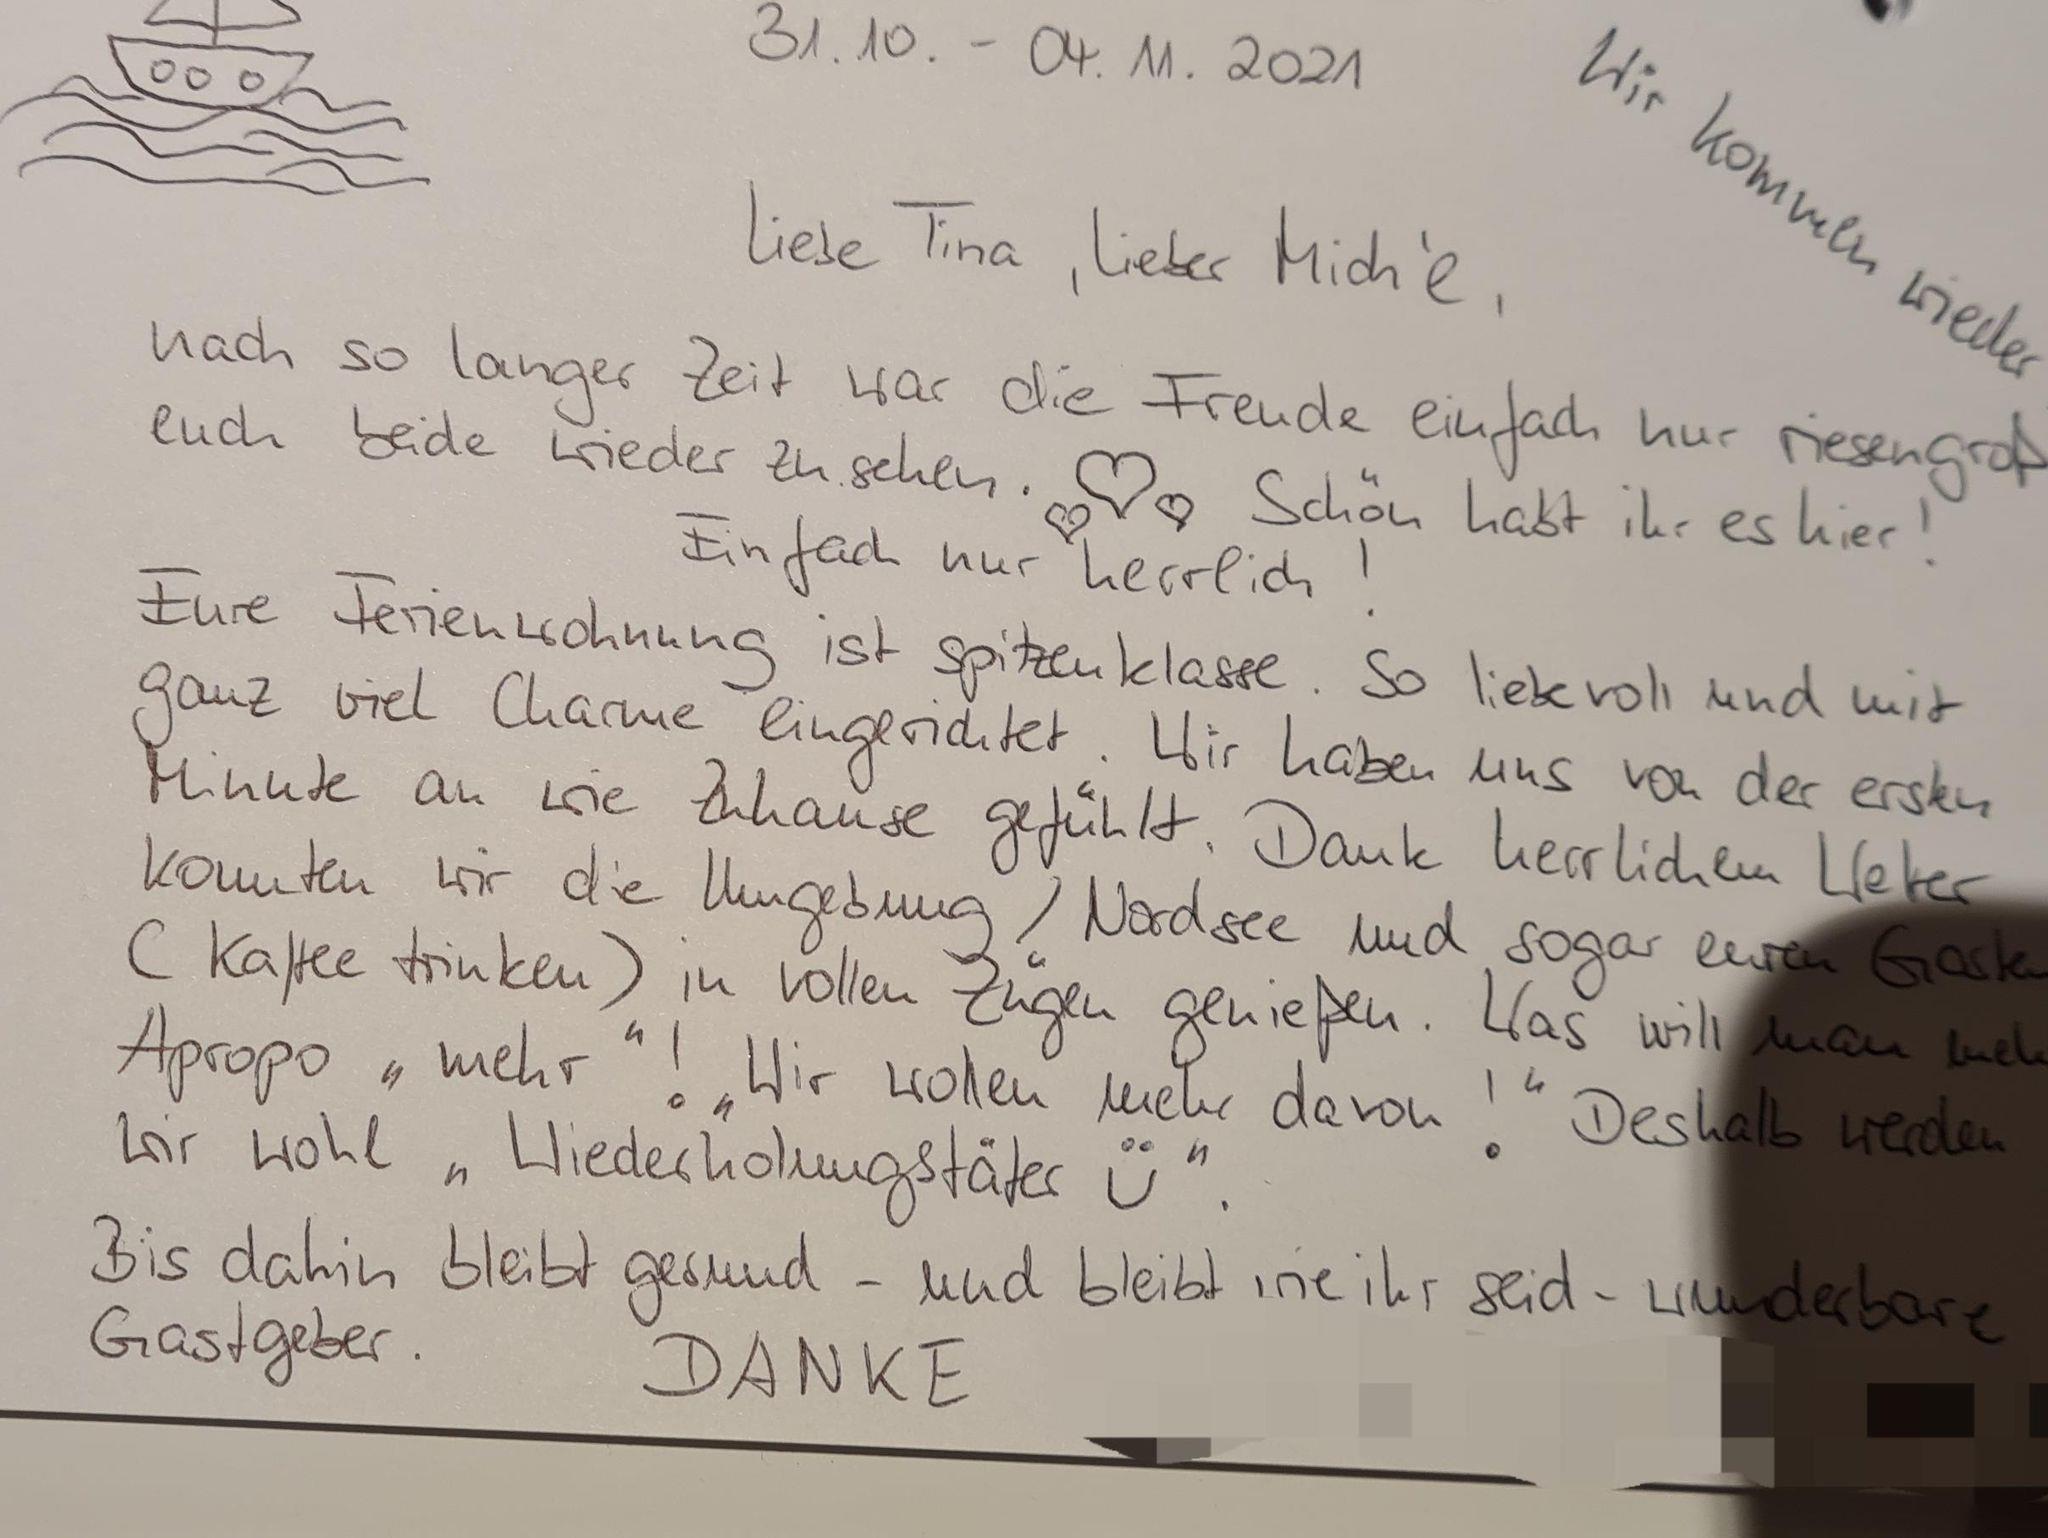 31.10. - 04.11.2021
Wir kommen wieder
Liebe Tina, Lieber Mich'l,
nach so langer Zeit war die Freude einfach nur riesengroß
euch beide wieder zu sehen. Schön habt ihr es hier!
Einfach nur herrlich!
Eure Ferienwohnung ist spitzenklasse. So liebevoll und mit
ganz viel Charme eingerichtet. Wir haben uns von der ersten
Minute an wie Zuhause gefühlt. Dank herrlichem Wetter
konnten wir die Umgebung / Nordsee und sogar euren Garten
(Kaffee trinken) in vollen Zügen genießen. Was will man mehr
Apropo „mehr"! „Wir wollen mehr davon!" Deshalb werden
wir wohl „Wiederholungstäter Ü".
Bis dahin bleibt gesund - und bleibt wie ihr seid - wunderbare
Gastgeber.
DANKE